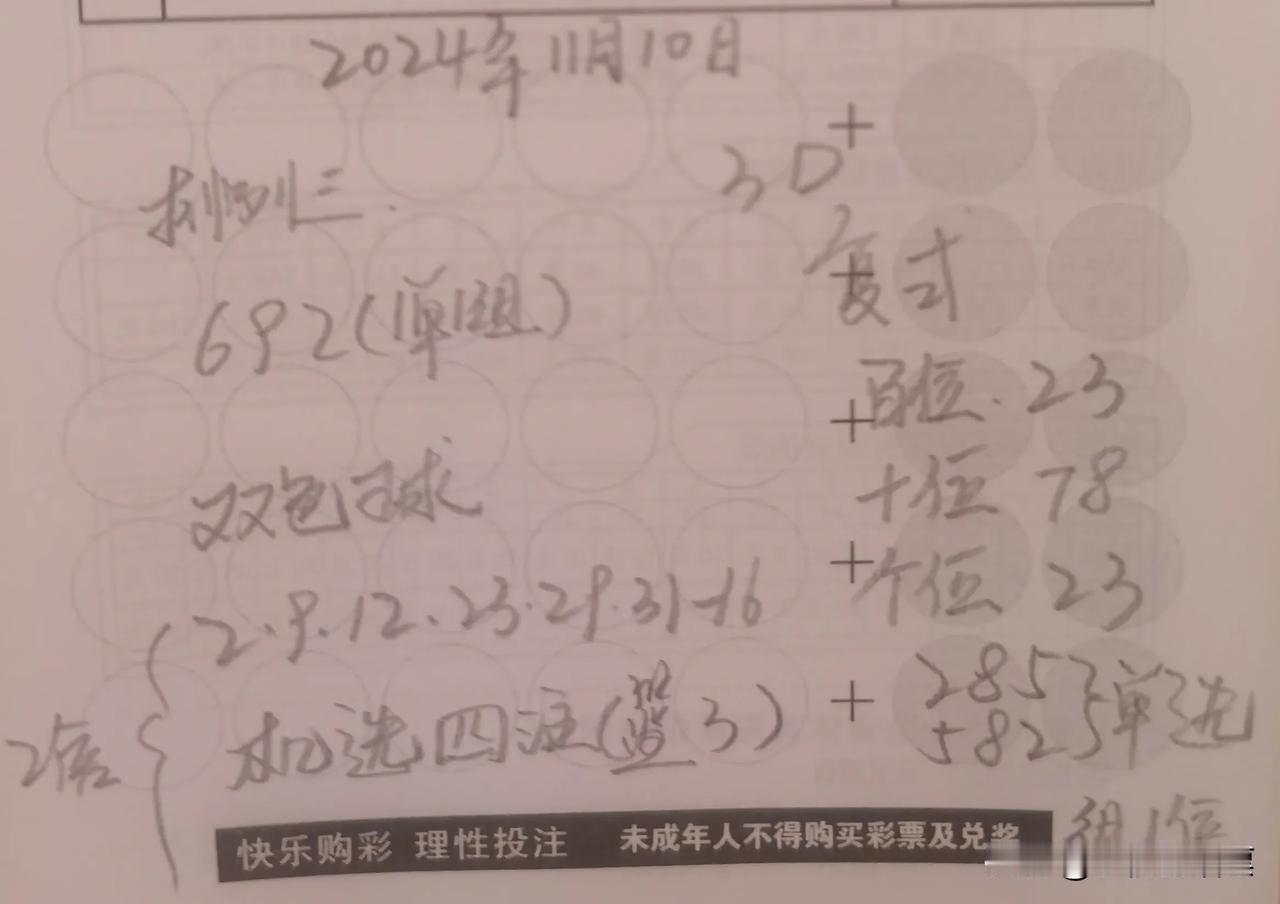 2024年11月10日
排列三.
692(1单1组)
双色球
2.9.12.23.29.31-16
机选四注(蓝3)
2倍
3D
复式
百位.23
十位 78
个位 23
285
582
单选
组1倍
快乐购彩 理性投注 未成年人不得购买彩票及兑奖